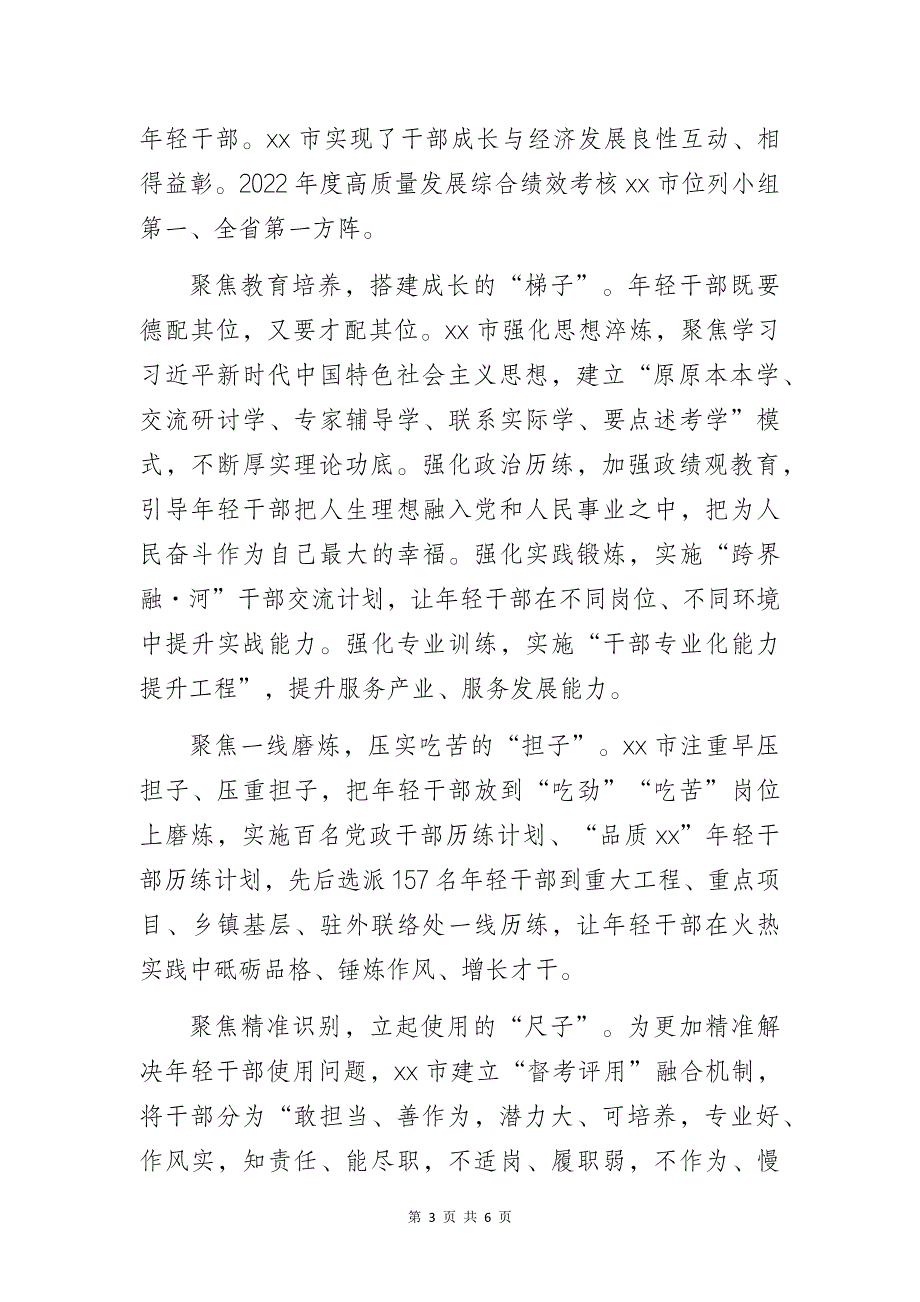 年轻干部。xx 市实现了干部成长与经济发展良性互动、相
得益彰。2022 年度高质量发展综合绩效考核 xx 市位列小组
第一、全省第一方阵。
聚焦教育培养，搭建成长的“梯子”。年轻干部既要
德配其位，又要才配其位。xx 市强化思想淬炼，聚焦学习
习近平新时代中国特色社会主义思想，建立“原原本本学、
交流研讨学、专家辅导学、联系实际学、要点述考学”模
式，不断厚实理论功底。强化政治历练，加强政绩观教育，
引导年轻干部把人生理想融入党和人民事业之中，把为人
民奋斗作为自己最大的幸福。强化实践锻炼，实施“跨界
融·河”干部交流计划，让年轻干部在不同岗位、不同环境
中提升实战能力。强化专业训练，实施“干部专业化能力
提升工程”，提升服务产业、服务发展能力。
聚焦一线磨炼，压实吃苦的“担子”。xx 市注重早压
担子、压重担子，把年轻干部放到“吃劲”“吃苦”岗位
上磨炼，实施百名党政干部历练计划、“品质 xx”年轻干
部历练计划，先后选派 157 名年轻干部到重大工程、重点项
目、乡镇基层、驻外联络处一线历练，让年轻干部在火热
实践中砥砺品格、锤炼作风、增长才干。
聚焦精准识别，立起使用的“尺子”。为更加精准解
决年轻干部使用问题，xx 市建立“督考评用”融合机制，
将干部分为“敢担当、善作为，潜力大、可培养，专业好、
作风实，知责任、能尽职，不适岗、履职弱，不作为、慢
第 3 页 共 6 页